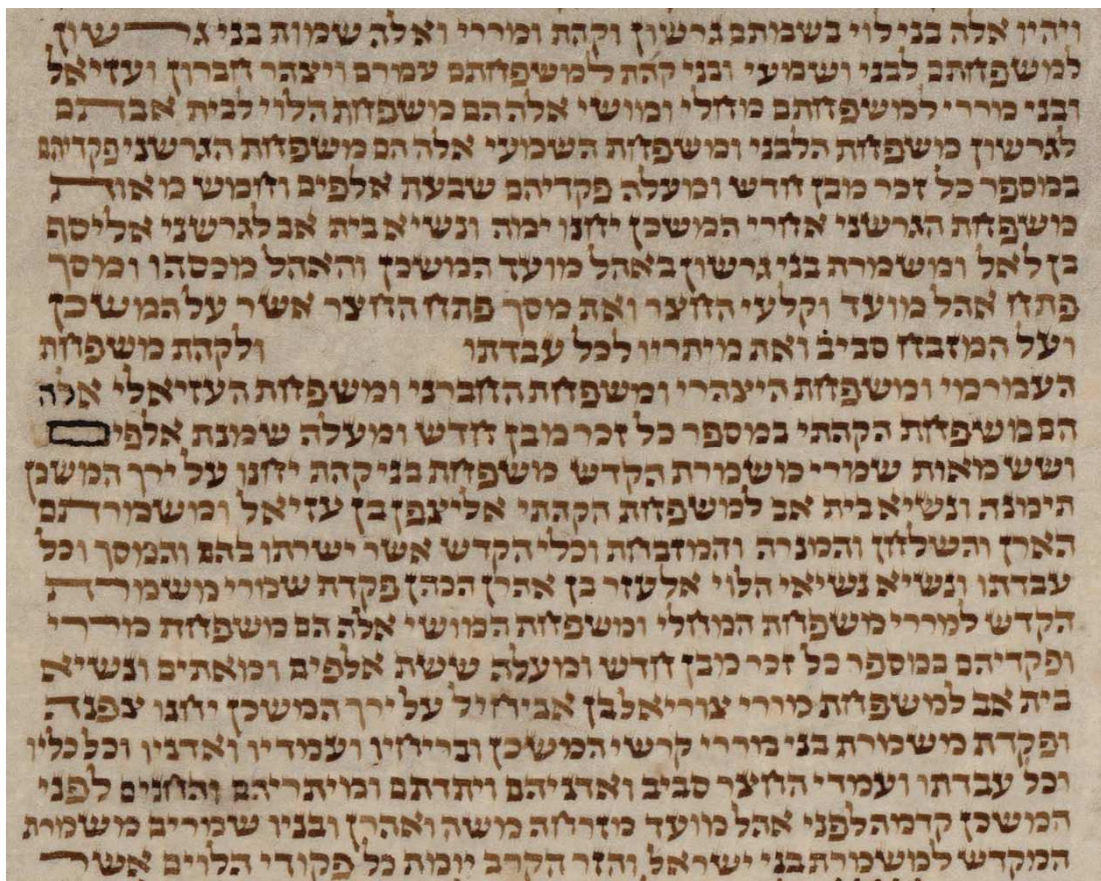 ויהיו אלה בני לוי בשמתם גרשון וקהת ומררי ואלה שמות בני גרשון
למשפחתם לבני ושמעי ובני קהת למשפחתם עמרם ויצהר חברון ועזיאל
ובני מררי למשפחתם מחלי ומושי אלה הם משפחת הלוי לבית אבתם
לגרשון משפחת הלבני ומשפחת השמעי אלה הם משפחת הגרשני פקדיהם
במספר כל זכר מבן חדש ומעלה פקדיהם שבעת אלפים וחמש מאות
משפחת הגרשני אחרי המשכן יחנו ימה ונשיא בית אב לגרשני אליסף
בן לאל ומשמרת בני גרשון באהל מועד המשכן והאהל מכסהו ומסך
פתח אהל מועד וקלעי החצר ואת מסך פתח החצר אשר על המשכן
ועל המזבח סביב ואת מיתריו לכל עבדתו ולקהת משפחת
העמרמי ומשפחת היצהרי ומשפחת החברני ומשפחת העזיאלי אלה
הם משפחת הקהתי במספר כל זכר מבן חדש ומעלה שמנת אלפים
ושש מאות שמרי משמרת הקדש משפחת בני קהת יחנו על ירך המשכן
תימנה ונשיא בית אב למשפחת הקהתי אליצפן בן עזיאל ומשמרתם
הארן והשלחן והמנרה והמזבחת וכלי הקדש אשר ישרתו בהם והמסך וכל
עבדתו ונשיא נשיאי הלוי אלעזר בן אהרן הכהן פקדת שמרי משמרת
הקדש למררי משפחת המחלי ומשפחת המושי אלה הם משפחת מררי
ופקדיהם במספר כל זכר מבן חדש ומעלה ששת אלפים ומאתים ונשיא
בית אב למשפחת מררי צוריאל בן אביחיל על ירך המשכן יחנו צפנה
ופקדת משמרת בני מררי קרשי המשכן ובריחיו ועמדיו ואדניו וכל כליו
וכל עבדתו ועמדי החצר סביב ואדניהם ויתדתם ומיתריהם והחנים לפני
המשכן קדמה לפני אהל מועד מזרחה משה ואהרן ובניו שמרים משמרת
המקדש למשמרת בני ישראל והזר הקרב יומת כל פקודי הלוים אשר